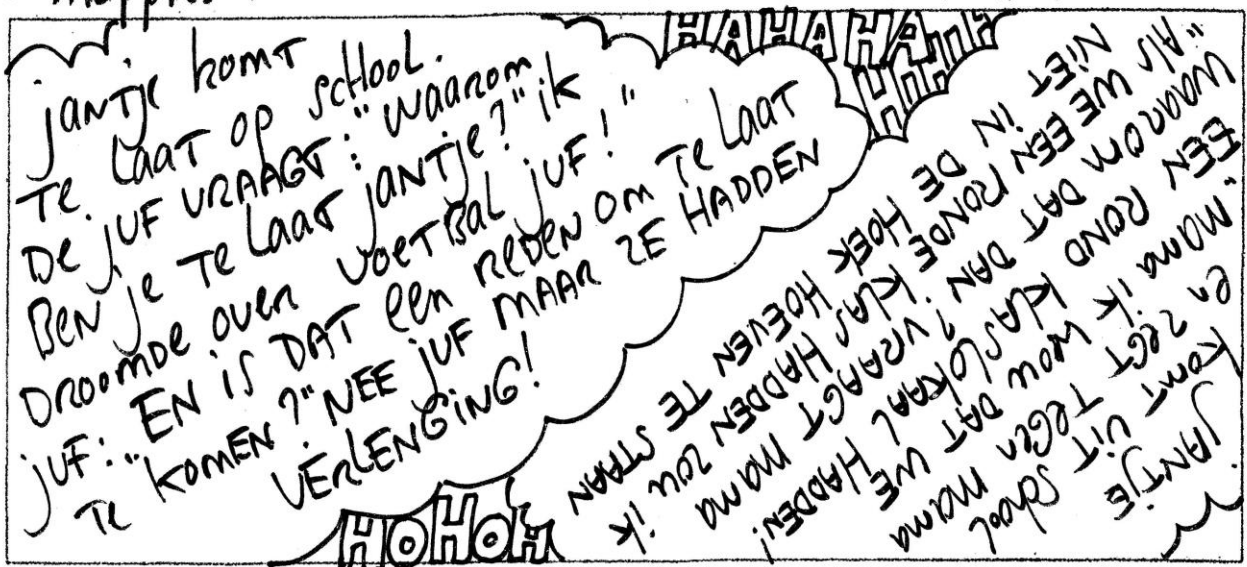 jANTje komT
Te LaaT op scHool.
De jUF VRAAGT: "Waarom
BEN je Te Laat jANTje?" ik
DROOMDE OVER VOETBAL jUF!"
jUF: "EN is DAT een REDEN om Te LaaT
Te KomEN?" NEE jUF MAAR ZE HADDEN
VERLENGING!
HAHAHA
HOHOH
JANTJE
komt uit school
en zegt tegen mama
"mama ik wou DAT WE
EEN ROND KLASLOKAAL HADDEN!
Waarom DAT DAN? VRAAGT mama
"Als WE EEN RONDE KLAS HADDEN zou ik
NIET IN DE HOEK HOEVEN TE STAAN